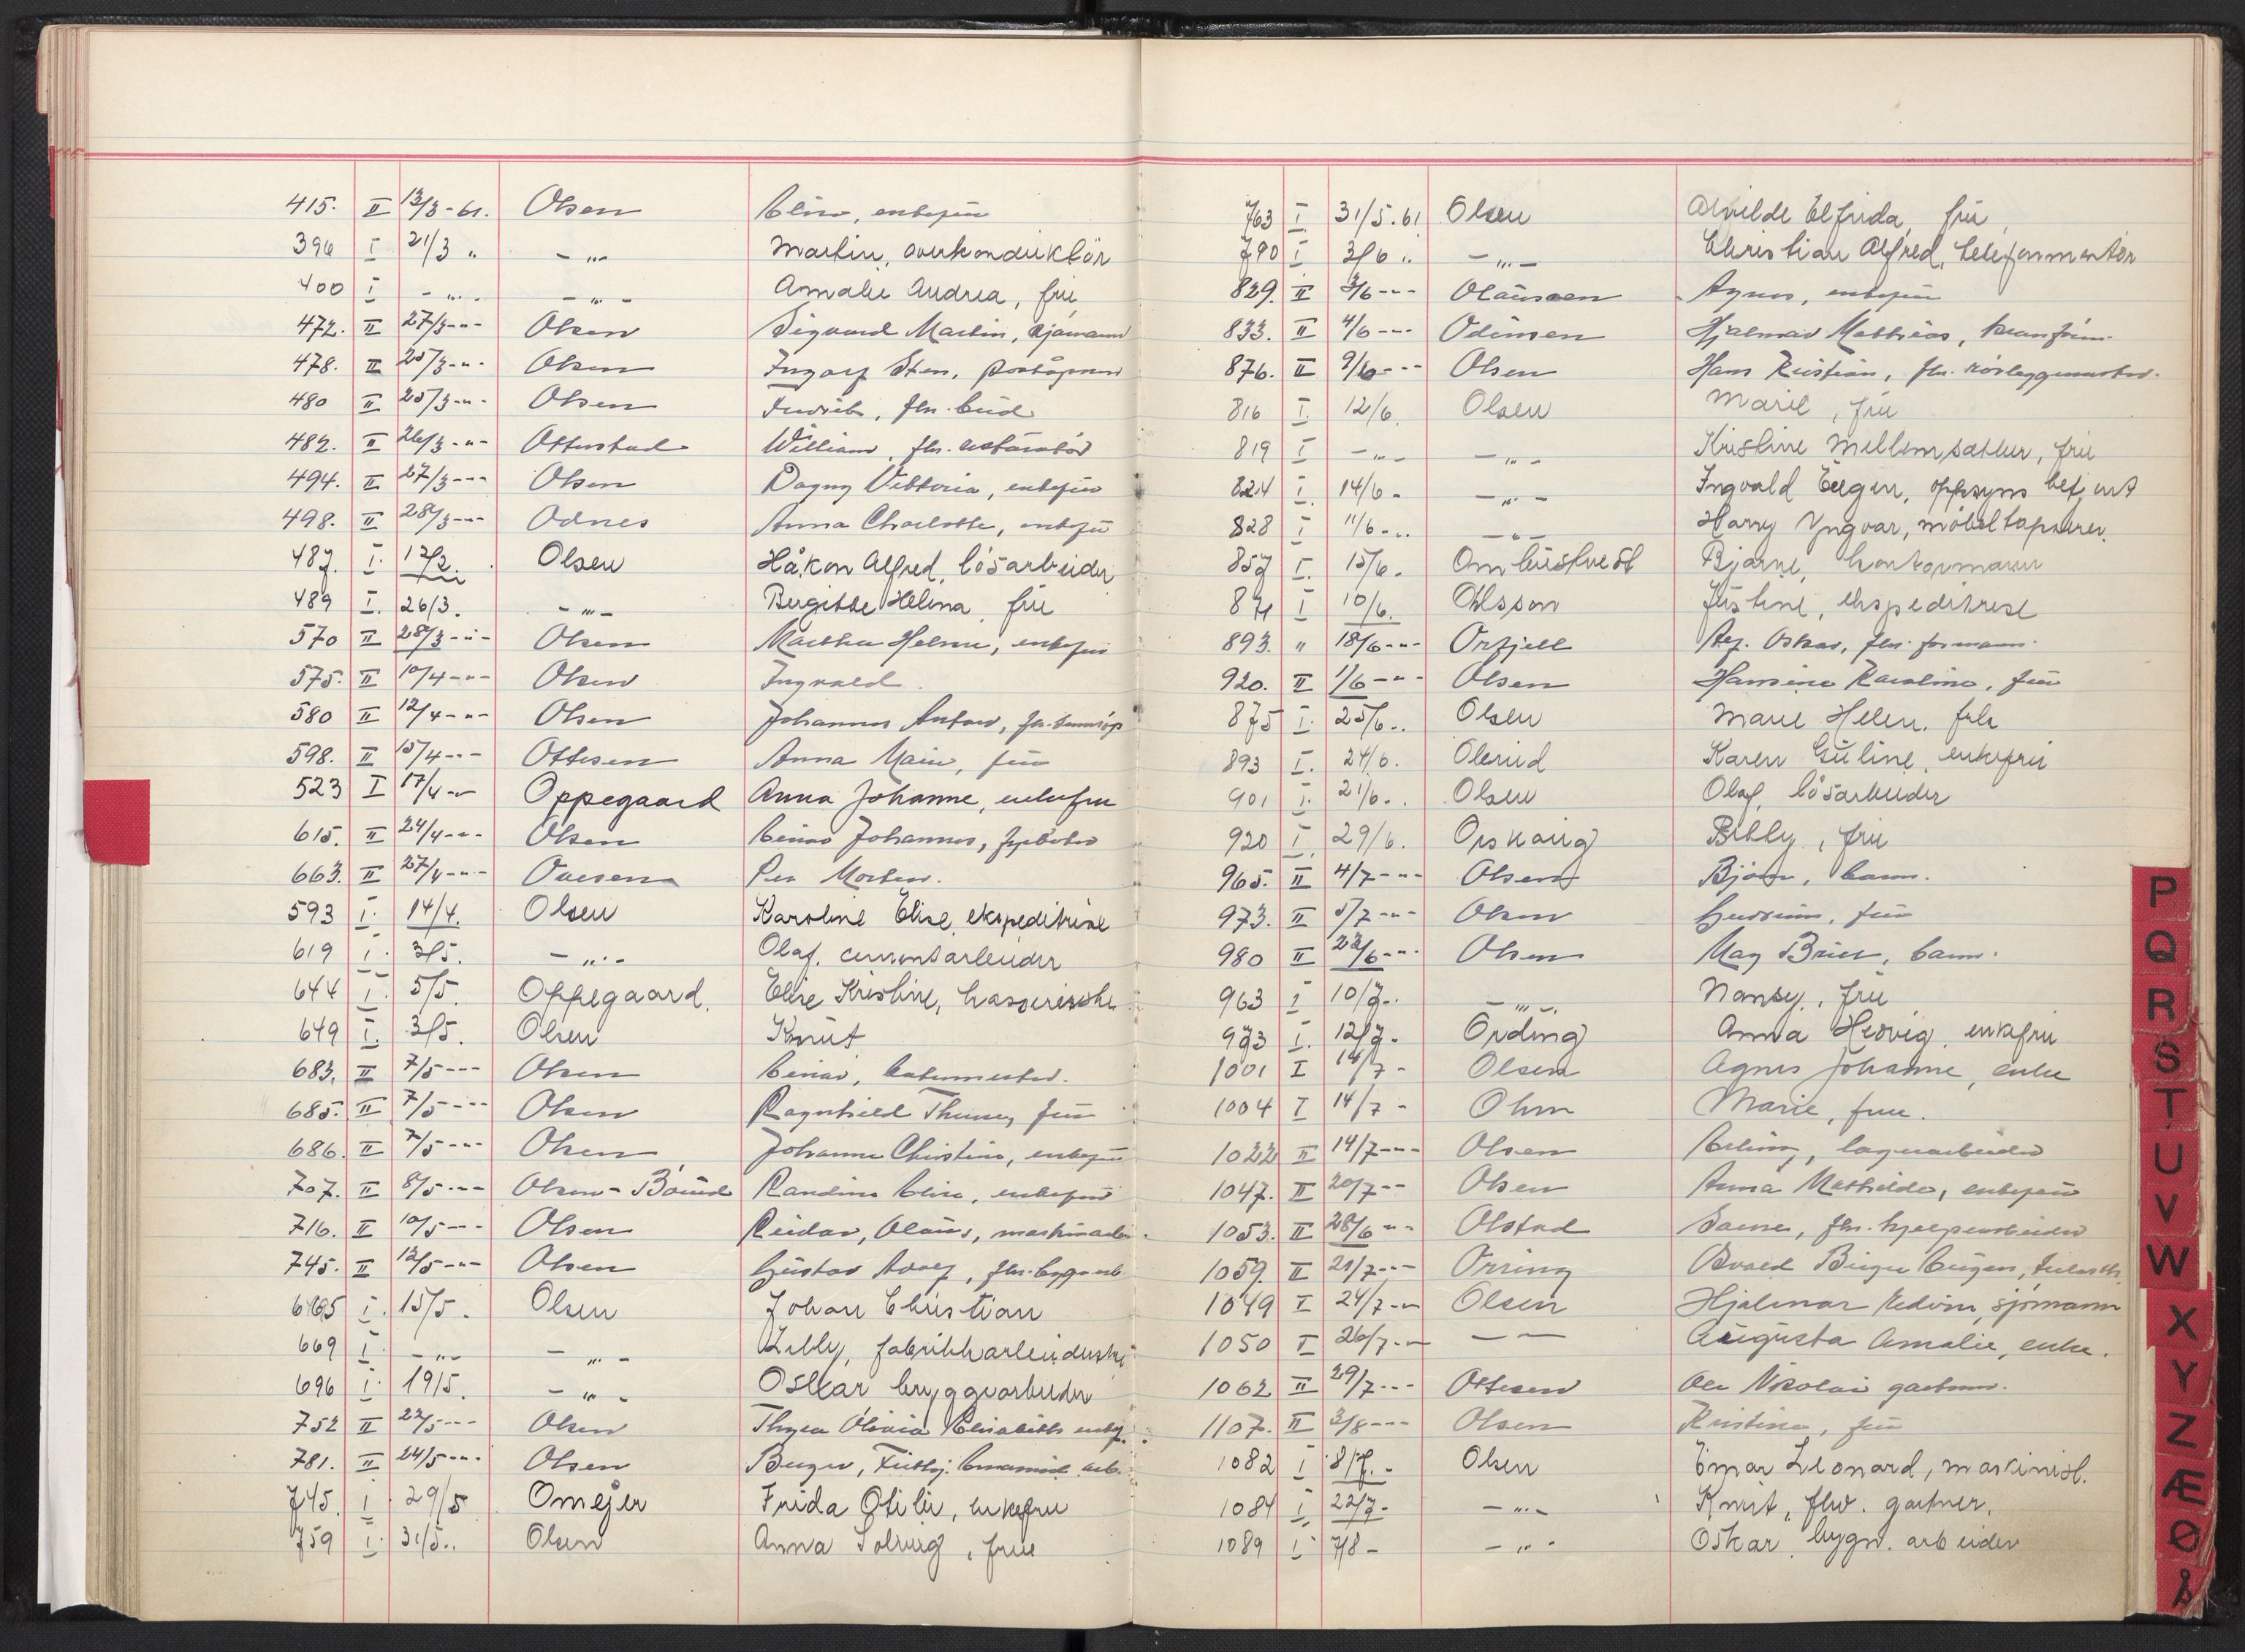 415. II 13/3-61. Olsen Elise, enkefru
396 I 21/3 " - " - Martin, overkonduktör
400 I - " - - " - Amalie Andrea, frü
472. II 27/3-"- Olsen Sigvard Martin, sjömann
478. II 25/3-"- Olsen Ingolf Sten,
480 II 25/3-"- Olsen fhv. bud
482. II 26/3-"- Otterstad William, fhv.
494. II 27/3-"- Olsen Dagny Viktoria, enkefru
498. II 28/3-"- Odnes Anna Charlotte, enkefrü
487. I. 17/2. Olsen Håkon Alfred, lösarbeider
489 I. 26/3. - " - Birgitte Helena, frü
570 II 28/3-"- Olsen Martha Helene, enkefru
575. II 10/4-"- Olsen Ingvald.
580 II 12/4-"- Olsen Johannes Anton,
598. II 15/4-"- Ottesen Anna Marie, frü
523 I 17/4-" Oppegaard Anna Johanne, enkefru
615. II 24/4-"- Olsen Einar Johannes,
663. II 27/4-"- Ovesen Per Morten.
593 I. 14/4. Olsen Karoline Elise, ekspeditrise
619 I. 3/5. - " - Olaf, cementarbeider
644 I. 5/5. Oppegaard. Elise Kristine, kassererske
649 I. 3/5. Olsen Knut
683. II 7/5-"- Olsen Einar,
685. II 7/5-"- Olsen Ragnhild Thinney, frü
686. II 7/5-"- Olsen Johanne Christine, enkefrü
707. II 8/5-"- Olsen- Randine Elise, enkefrü
716. II 10/5-"- Olsen Reidar, Olaüs, maskinarb.
745. II 12/5-"- Olsen Güstav Adolf, fhv. byggarb
665 I. 15/5. Olsen Johan Christian
669 I. - " - - " - Lilly, fabrikkarbeiderske
696 I. 19/5. - " - Oskar bryggearbeider
752 II 22/5-"- Olsen Thyra Olivia Elisabeth enkef.
781. II 24/5-"- Olsen Birger,
745. I. 29/5 Omejer Frida Otilie, enkefru
759 I. 31/5.. Olsen Anna Solveig, frue
763 I. 31/5.61 Olsen Alvilde Elfrida, frü
790 I 3/6 .. - " - Christian Alfred, telefonmontör
829. II 3/6-"- Olaussen Agnes, enkefrü
833. II 4/6-"- Odinsen Hjalmar Mathias,
876. II 9/6-"- Olsen Hans Kristian, fhv. rörleggermester.
816 I. 12/6. Olsen Marie, frü
819 I - " - - " - Kristine Mellemsæther, frü
824 I. 14/6- - " - Ingvald Eugen, oppsyns betjent
828 I 11/6-.. - " - Harry Yngvar, möbeltapserer.
857 I. 15/6. Ombustvedt Bjarne, kontormann
871 I 10/6. Ohlsson Justine, ekspeditrise
893. " 18/6-"- Orfjell Oskar, fhv. formann.
920. II 1/6-"- Olsen Hansine Karoline, frü
875 I. 25/6.. Olsen Marie Helen. frk
893 I. 24/6. Olerud Karen Guline, enkefru
901 I. 21/6.. Olsen Olaf, lösarbeider
920 I. 29/6. Orskaug Bebly, frü
965. II 4/7-"- Olsen Björn, barn.
973. II 5/7-"- Olsen Gudrun, frü
980 II 22/6-"- Olsen May Britt, barn.
963 I 10/7.. - " - Nansy, frü
973 I. 12/7- Ording Anna Hedvig, enkefru
1001 I 14/7- Olsen Agnes Johanne, enke
1004 I 14/7- Ohm Marie, frue.
1022 II 14/7-"- Olsen Erling, lagerarbeider
1047. II 20/7-- Olsen Anna Mathilde, enkefru
1053. II 28/6-"- Olstad fhv. hjelpearbeider
1059. II 21/7-"- Orring Osvald Birger Eugen,
1049 I 24/7-" Olsen Hjalmar Edvin, sjömann
1050 I 26/7-" — — Augusta Amalie, enke.
1062 II 29/7-"- Ottesen Ole Nikolai gartner.
1107. II 3/8-"- Olsen Kristine, frü
1082 I 8/7.- Olsen Einar Leonard, maskinist.
1084 I 22/7- - " - Knut, fhv. gartner.
1089 I 7/8- - " - Oskar, bygn. arbeider
P
Q
R
S
T
U
V
W
X
Y
Z
Æ
Ø
Å